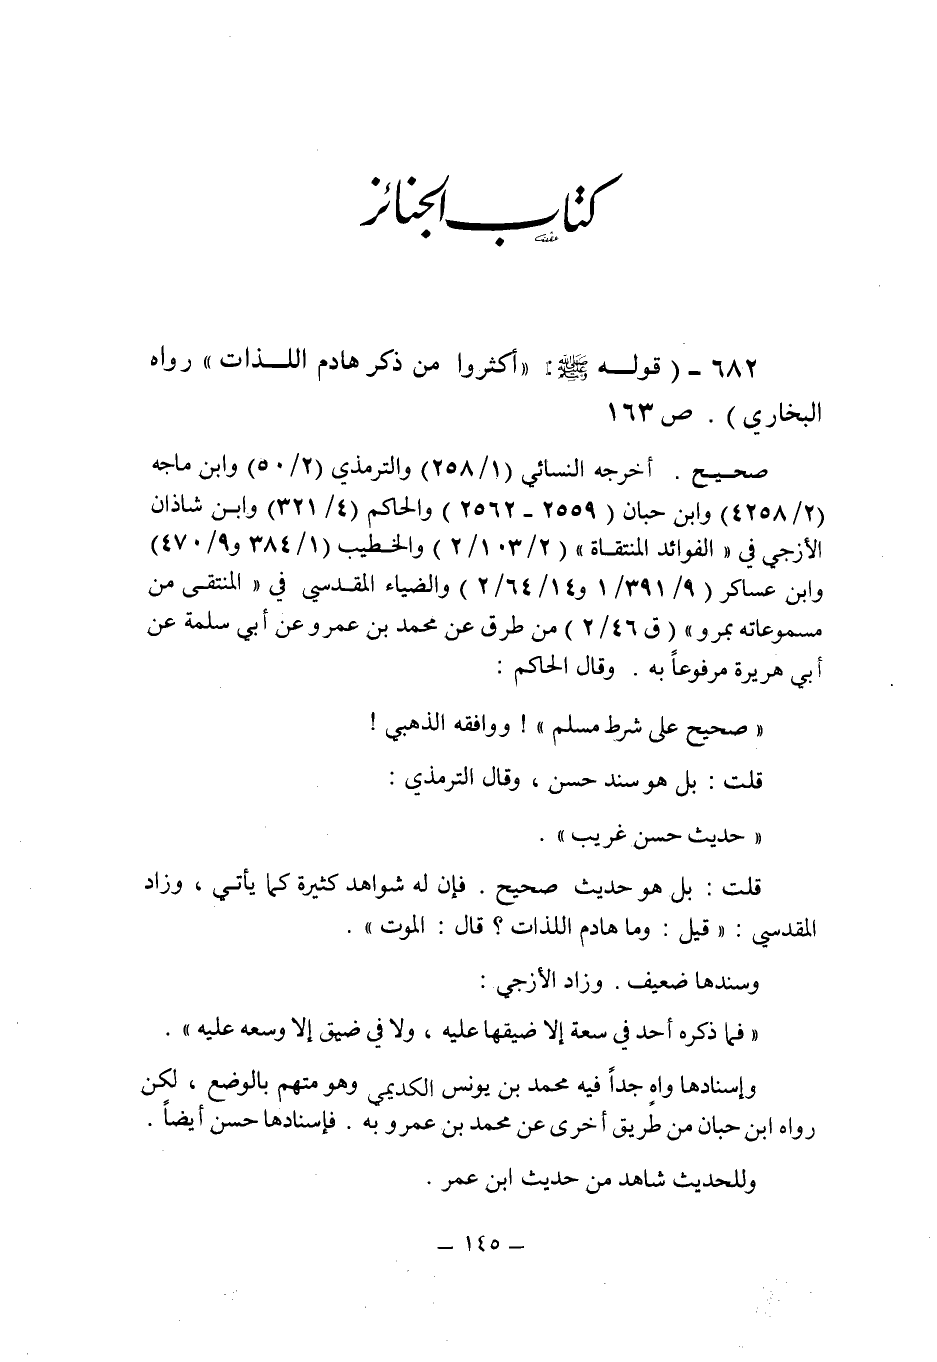 كتاب الجنائز
٦٨٢ ـ ( قولـــه ﷺ : « أكثروا من ذكر هادم اللـــذات » رواه
البخاري ) . ص ١٦٣
صحيـــح . أخرجه النسائي (٢٥٨/١) والترمذي (٥٠/٢) وابن ماجه
(٤٢٥٨/٢) وابن حبان ( ٢٥٥٩ ـ ٢٥٦٢ ) والحاكم (٣٢١/٤) وابـن شاذان
الأزجي في « الفوائد المنتقـاة » ( ٢/١٠٣/٢ ) والخـطيب (٣٨٤/١ و٤٧٠/٩)
وابن عساكر ( ١/٣٩١/٩ و٢/٦٤/١٤ ) والضياء المقـدسي في « المنتقـى من
مسموعاته بمرو » ( ق ٢/٤٦ ) من طرق عن محمد بن عمرو عن أبي سلمة عن
أبي هريرة مرفوعاً به . وقال الحاكم :
« صحيح على شرط مسلم » ! ووافقه الذهبي !
قلت : بل هو سند حسن ، وقال الترمذي :
« حديث حسن غريب » .
قلت : بل هو حديث صحيح . فإن له شواهد كثيرة كما يأتـي ، وزاد
المقدسي : « قيل : وما هادم اللذات ؟ قال : الموت » .
وسندها ضعيف . وزاد الأزجي :
« فما ذكره أحد في سعة إلا ضيقها عليه ، ولا في ضيق إلا وسعه عليه » .
وإسنادها واهٍ جداً فيه محمد بن يونس الكديمي وهو متهم بالوضع ، لكن
رواه ابن حبان من طريق أخرى عن محمد بن عمرو به . فإسنادها حسن أيضاً .
وللحديث شاهد من حديث ابن عمر .
ـ ١٤٥ ـ